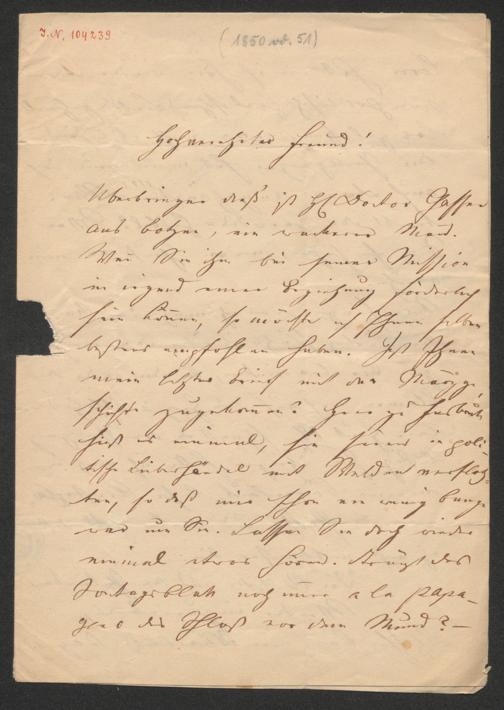 I.N. 104239
(1850 od. 51)
Hochverehrter Freund!
Überbringer dieß ist H. Doctor Gasser
aus Botzen, ein wackerer Mann.
Wenn Sie ihm bei seiner Mission
in irgend einer Beziehung förderlich
sein können, so möchte ich Ihnen selben
bestens empfohlen haben. Ist Ihnen
mein letzter Brief mit der
schichte zugekommen? Hier zu
hieß es einmal, Sie seien in poli-
tische Liebeshändel mit Welden verfloch-
ten, so daß mir schon ein wenig bange
war um Sie. Lassen Sie doch wieder
einmal etwas hören. Trägt das
Sontagsblatt noch immer a la Papa-
geno das Schloß vor dem Mund? —